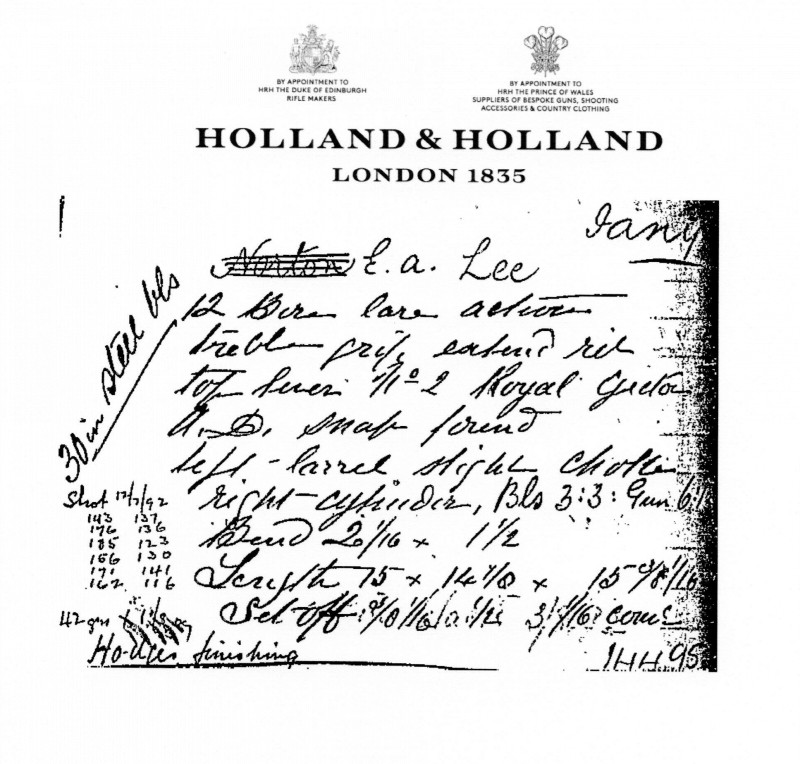 BY APPOINTMENT TO
HRH THE DUKE OF EDINBURGH
RIFLE MAKERS
BY APPOINTMENT TO
HRH THE PRINCE OF WALES
SUPPLIERS OF BESPOKE GUNS, SHOOTING
ACCESSORIES & COUNTRY CLOTHING
HOLLAND & HOLLAND
LONDON 1835
Norton E. A. Lee
12 Bore action
treble grip, extend rib
top lever No 2 Royal
A.D. snap
left-barrel slight choke
right-cylinder, Bls 3:3: Gun 6:
Bend 2 1/16 x 1 1/2
Length 15 x 14 7/8 x 15
Set off
30 in steel bls
Shot 12/7/92
143 137
176 136
185 123
156 130
171 141
162 116
42 gns
Hodges finishing